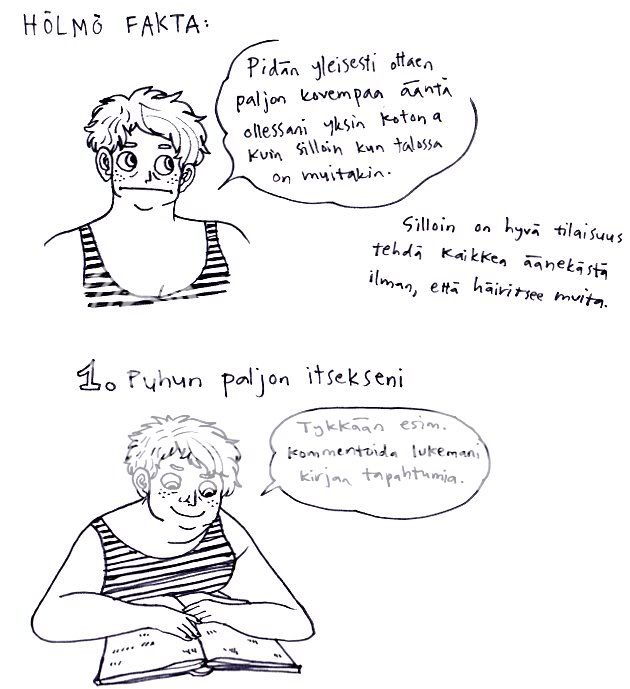 HÖLMÖ FAKTA:
Pidän yleisesti ottaen
paljon kovempaa ääntä
ollessani yksin kotona
kuin silloin kun talossa
on muitakin.
Silloin on hyvä tilaisuus
tehdä kaikkea äänekästä
ilman, että häiritsee muita.
1. Puhun paljon itsekseni
Tykkään esim.
kommentoida lukemani
kirjan tapahtumia.